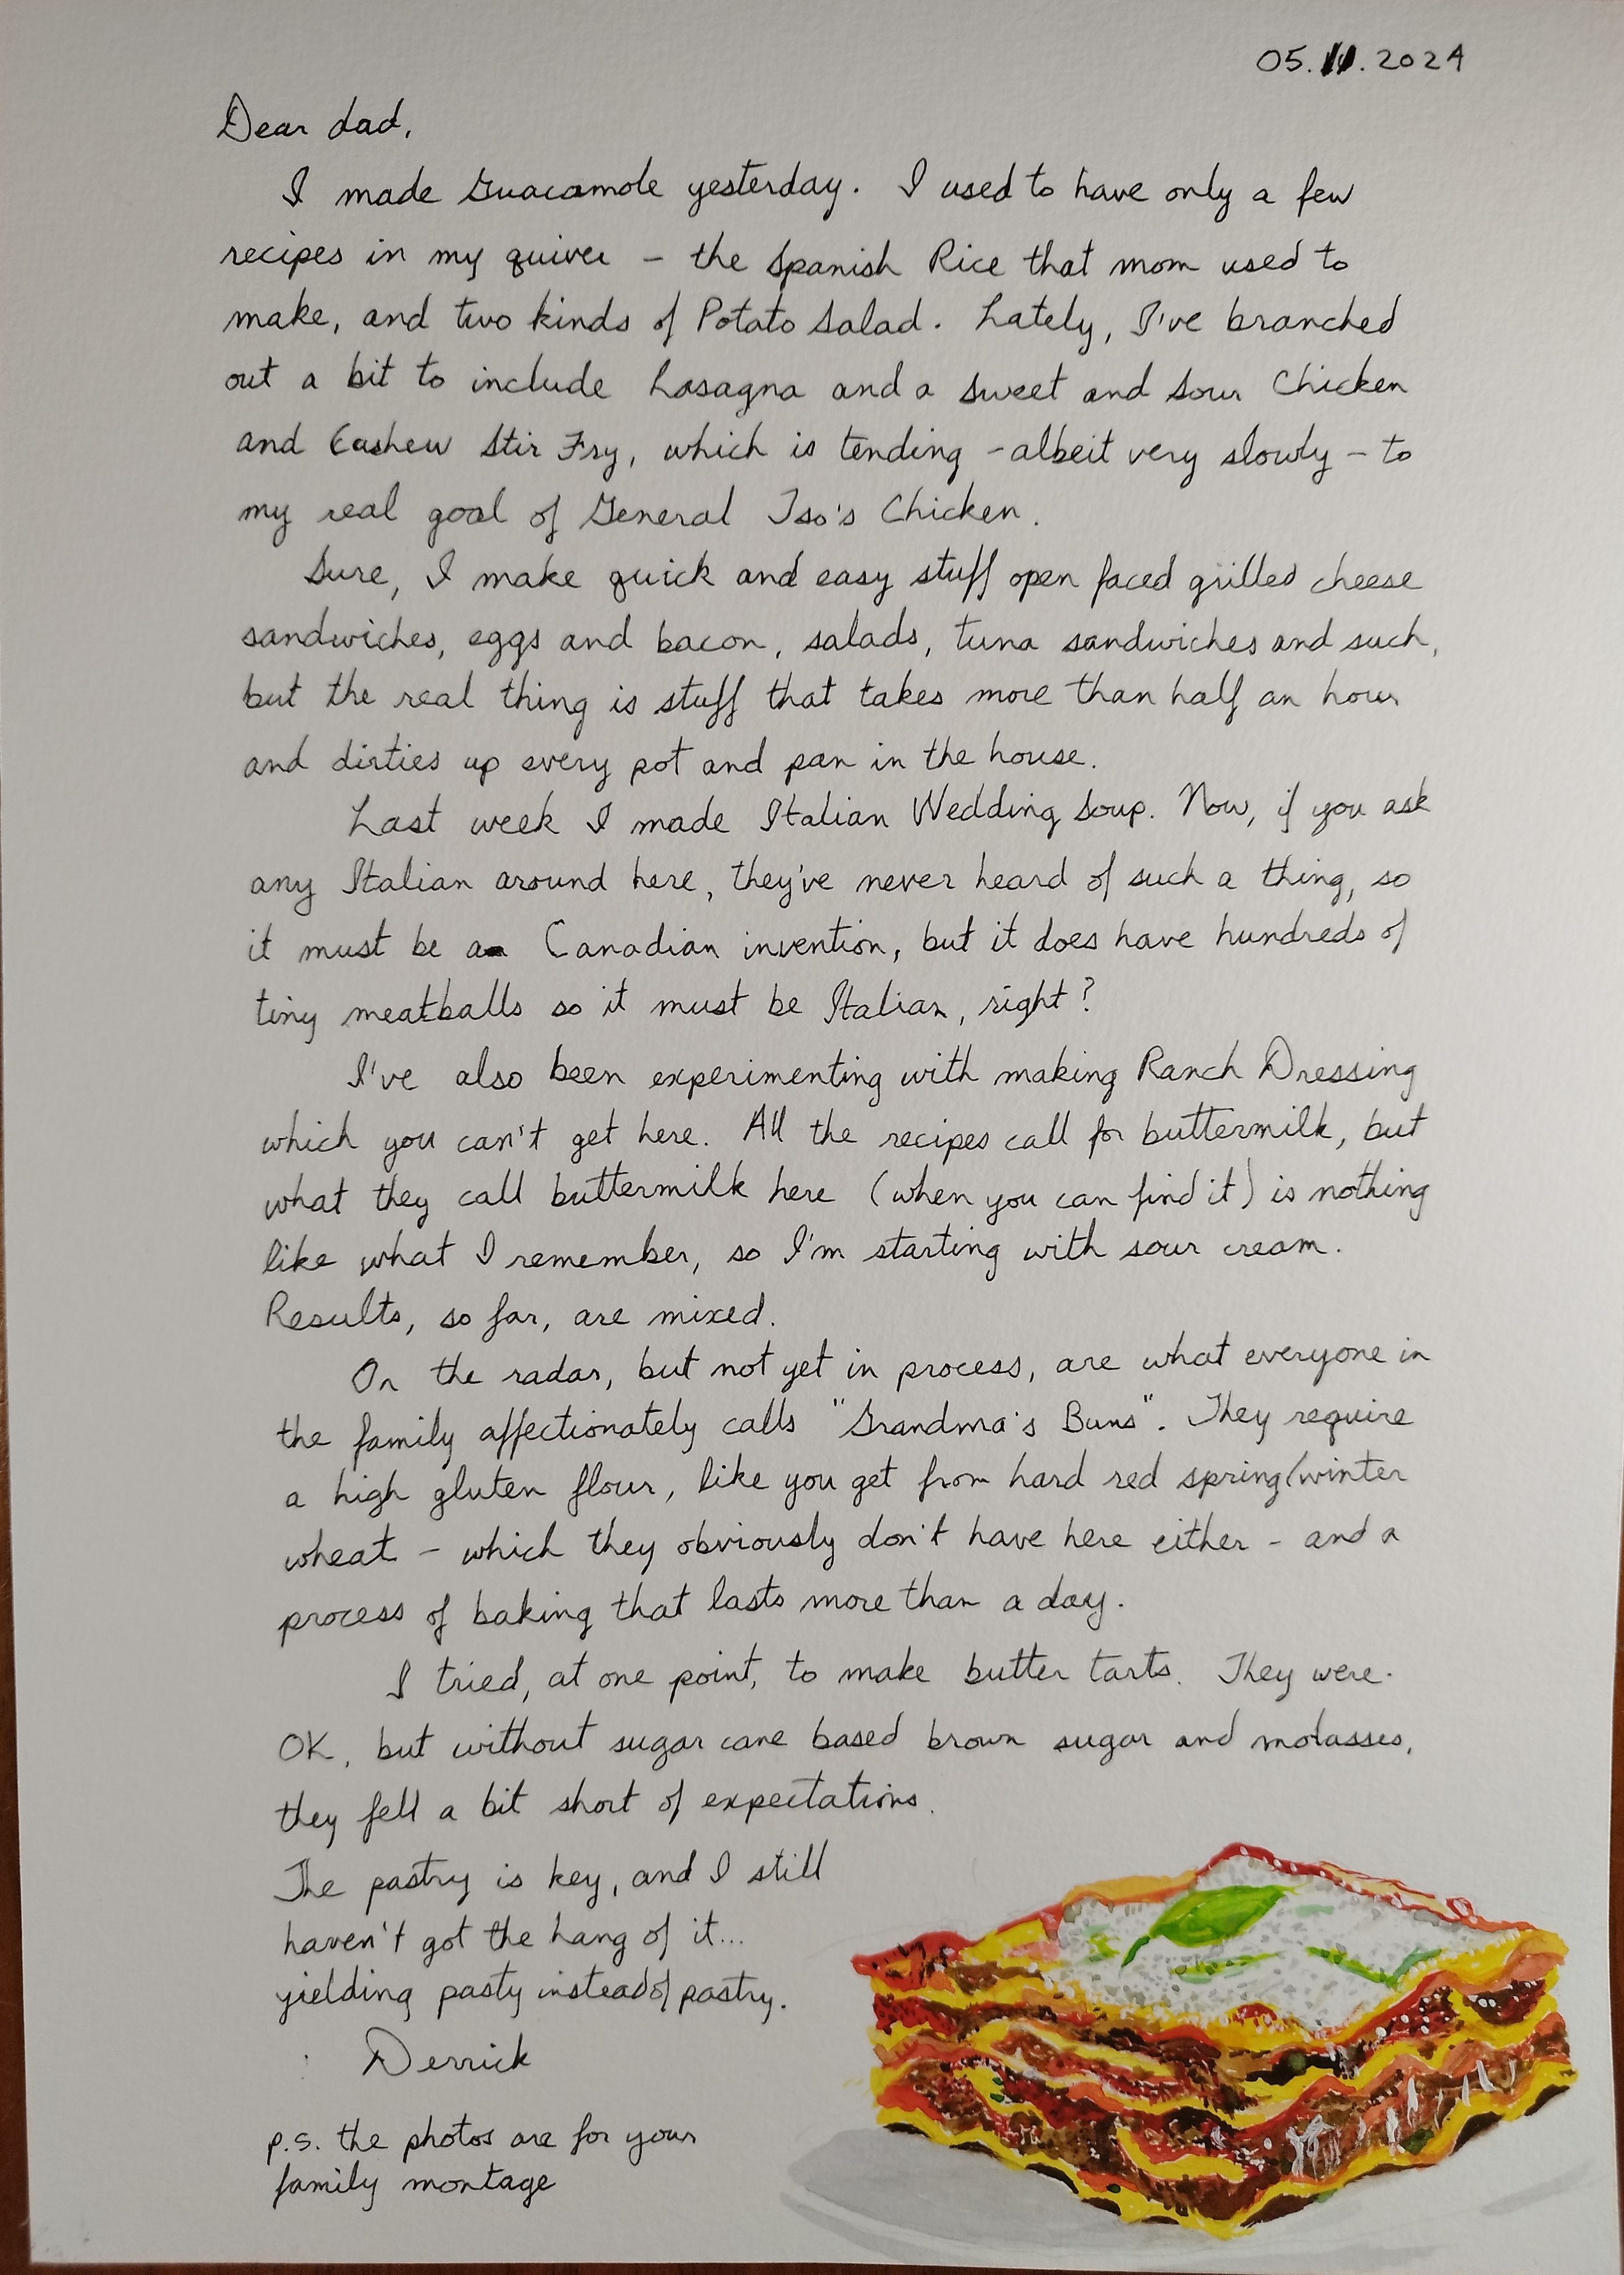 05.11.2024
Dear dad,
I made Guacamole yesterday. I used to have only a few
recipes in my quiver - the Spanish Rice that mom used to
make, and two kinds of Potato Salad. Lately, I've branched
out a bit to include Lasagna and a Sweet and Sour Chicken
and Cashew Stir Fry, which is tending - albeit very slowly - to
my real goal of General Tso's Chicken.
Sure, I make quick and easy stuff open faced grilled cheese
sandwiches, eggs and bacon, salads, tuna sandwiches and such,
but the real thing is stuff that takes more than half an hour
and dirties up every pot and pan in the house.
Last week I made Italian Wedding Soup. Now, if you ask
any Italian around here, they've never heard of such a thing, so
it must be a Canadian invention, but it does have hundreds of
tiny meatballs so it must be Italian, right?
I've also been experimenting with making Ranch Dressing
which you can't get here. All the recipes call for buttermilk, but
what they call buttermilk here (when you can find it) is nothing
like what I remember, so I'm starting with sour cream.
Results, so far, are mixed.
On the radar, but not yet in process, are what everyone in
the family affectionately calls "Grandma's Buns". They require
a high gluten flour, like you get from hard red spring/winter
wheat - which they obviously don't have here either - and a
process of baking that lasts more than a day.
I tried, at one point, to make butter tarts. They were
OK, but without sugar cane based brown sugar and molasses,
they fell a bit short of expectations.
The pastry is key, and I still
haven't got the hang of it...
yielding pasty instead of pastry.
Derrick
p.s. the photos are for your
family montage